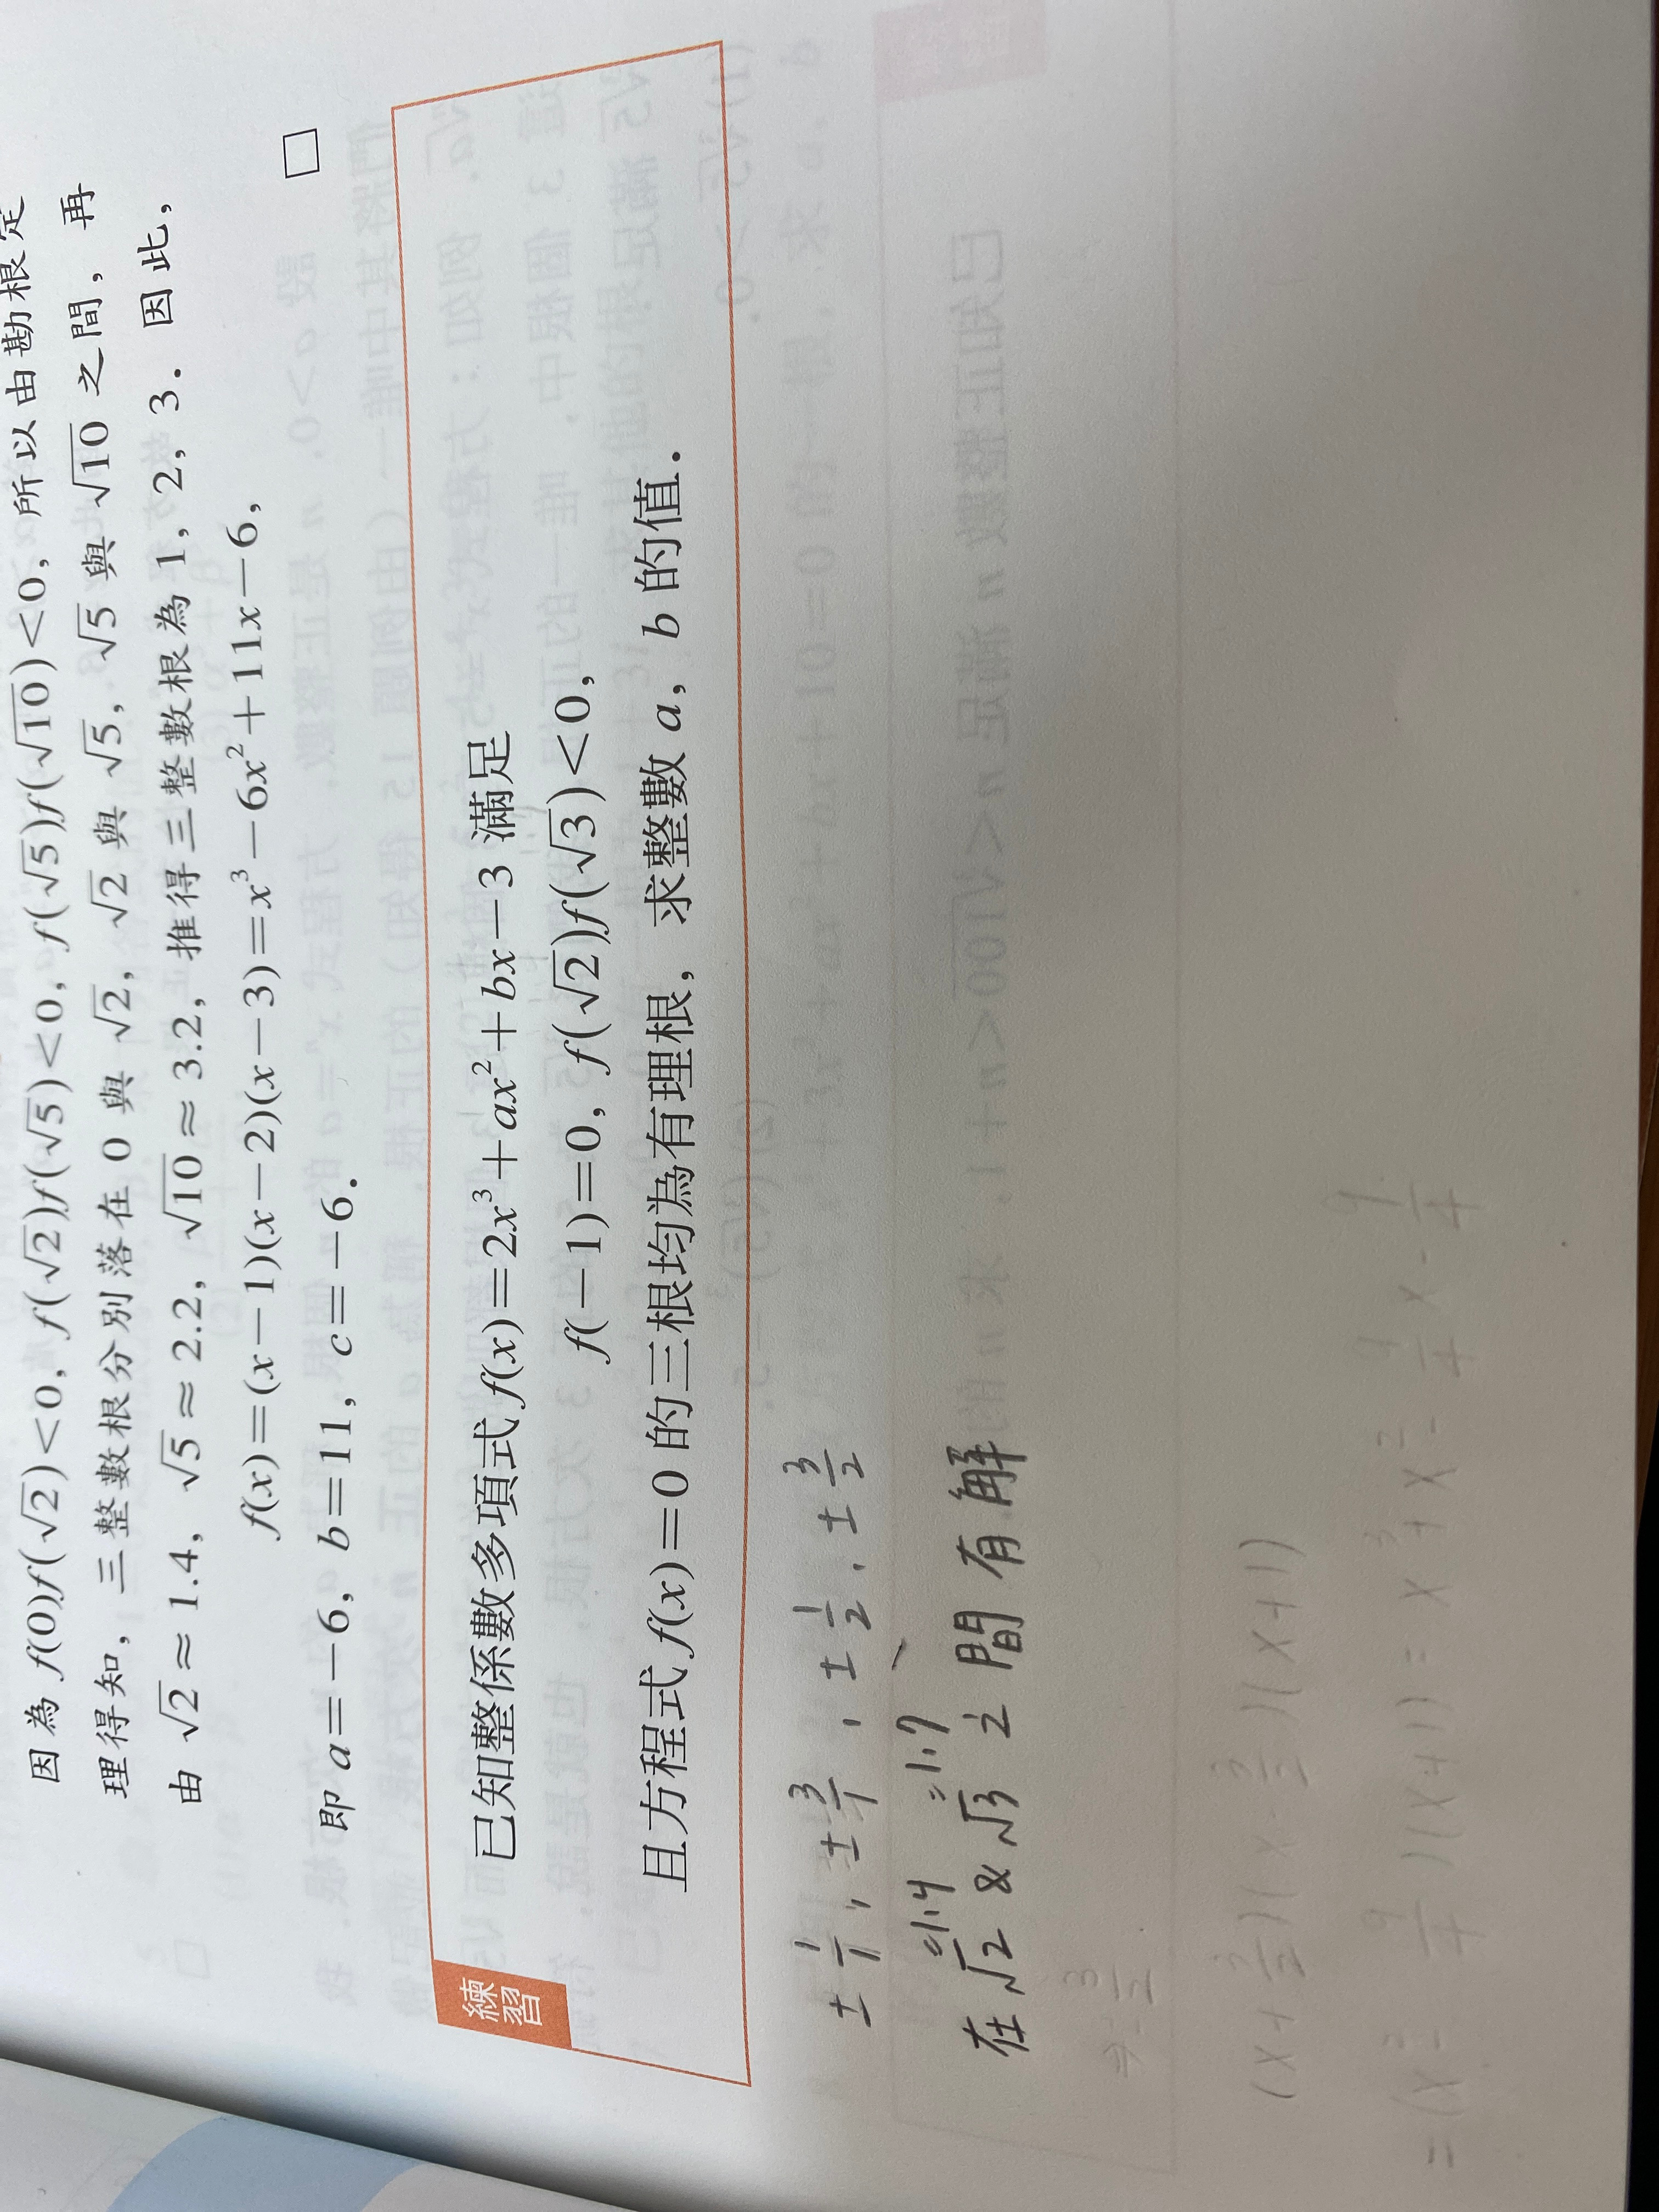 因為 f(0)f(√2)<0, f(√2)f(√5)<0, f(√5)f(√10)<0, 所以由勘根定
理得知, 三整數根分別落在 0 與 √2, √2 與 √5, √5 與 √10 之間, 再
由 √2≈1.4, √5≈2.2, √10≈3.2, 推得三整數根為 1, 2, 3. 因此,
f(x)=(x-1)(x-2)(x-3)=x³-6x²+11x-6,
即 a=-6, b=11, c=-6.
□
練習
已知整係數多項式 f(x)=2x³+ax²+bx-3 滿足
f(-1)=0, f(√2)f(√3)<0,
且方程式 f(x)=0 的三根均為有理根, 求整數 a, b 的值.
± 1/1, ± 3/1, ± 1/2, ± 3/2
≈1.4 ≈1.7
在 √2 & √3 之間有解
⇒ 3/2
(x+3/2)(x-3/2)(x+1)
=(x²-9/4)(x+1)=x³+x²-9/4x-9/4